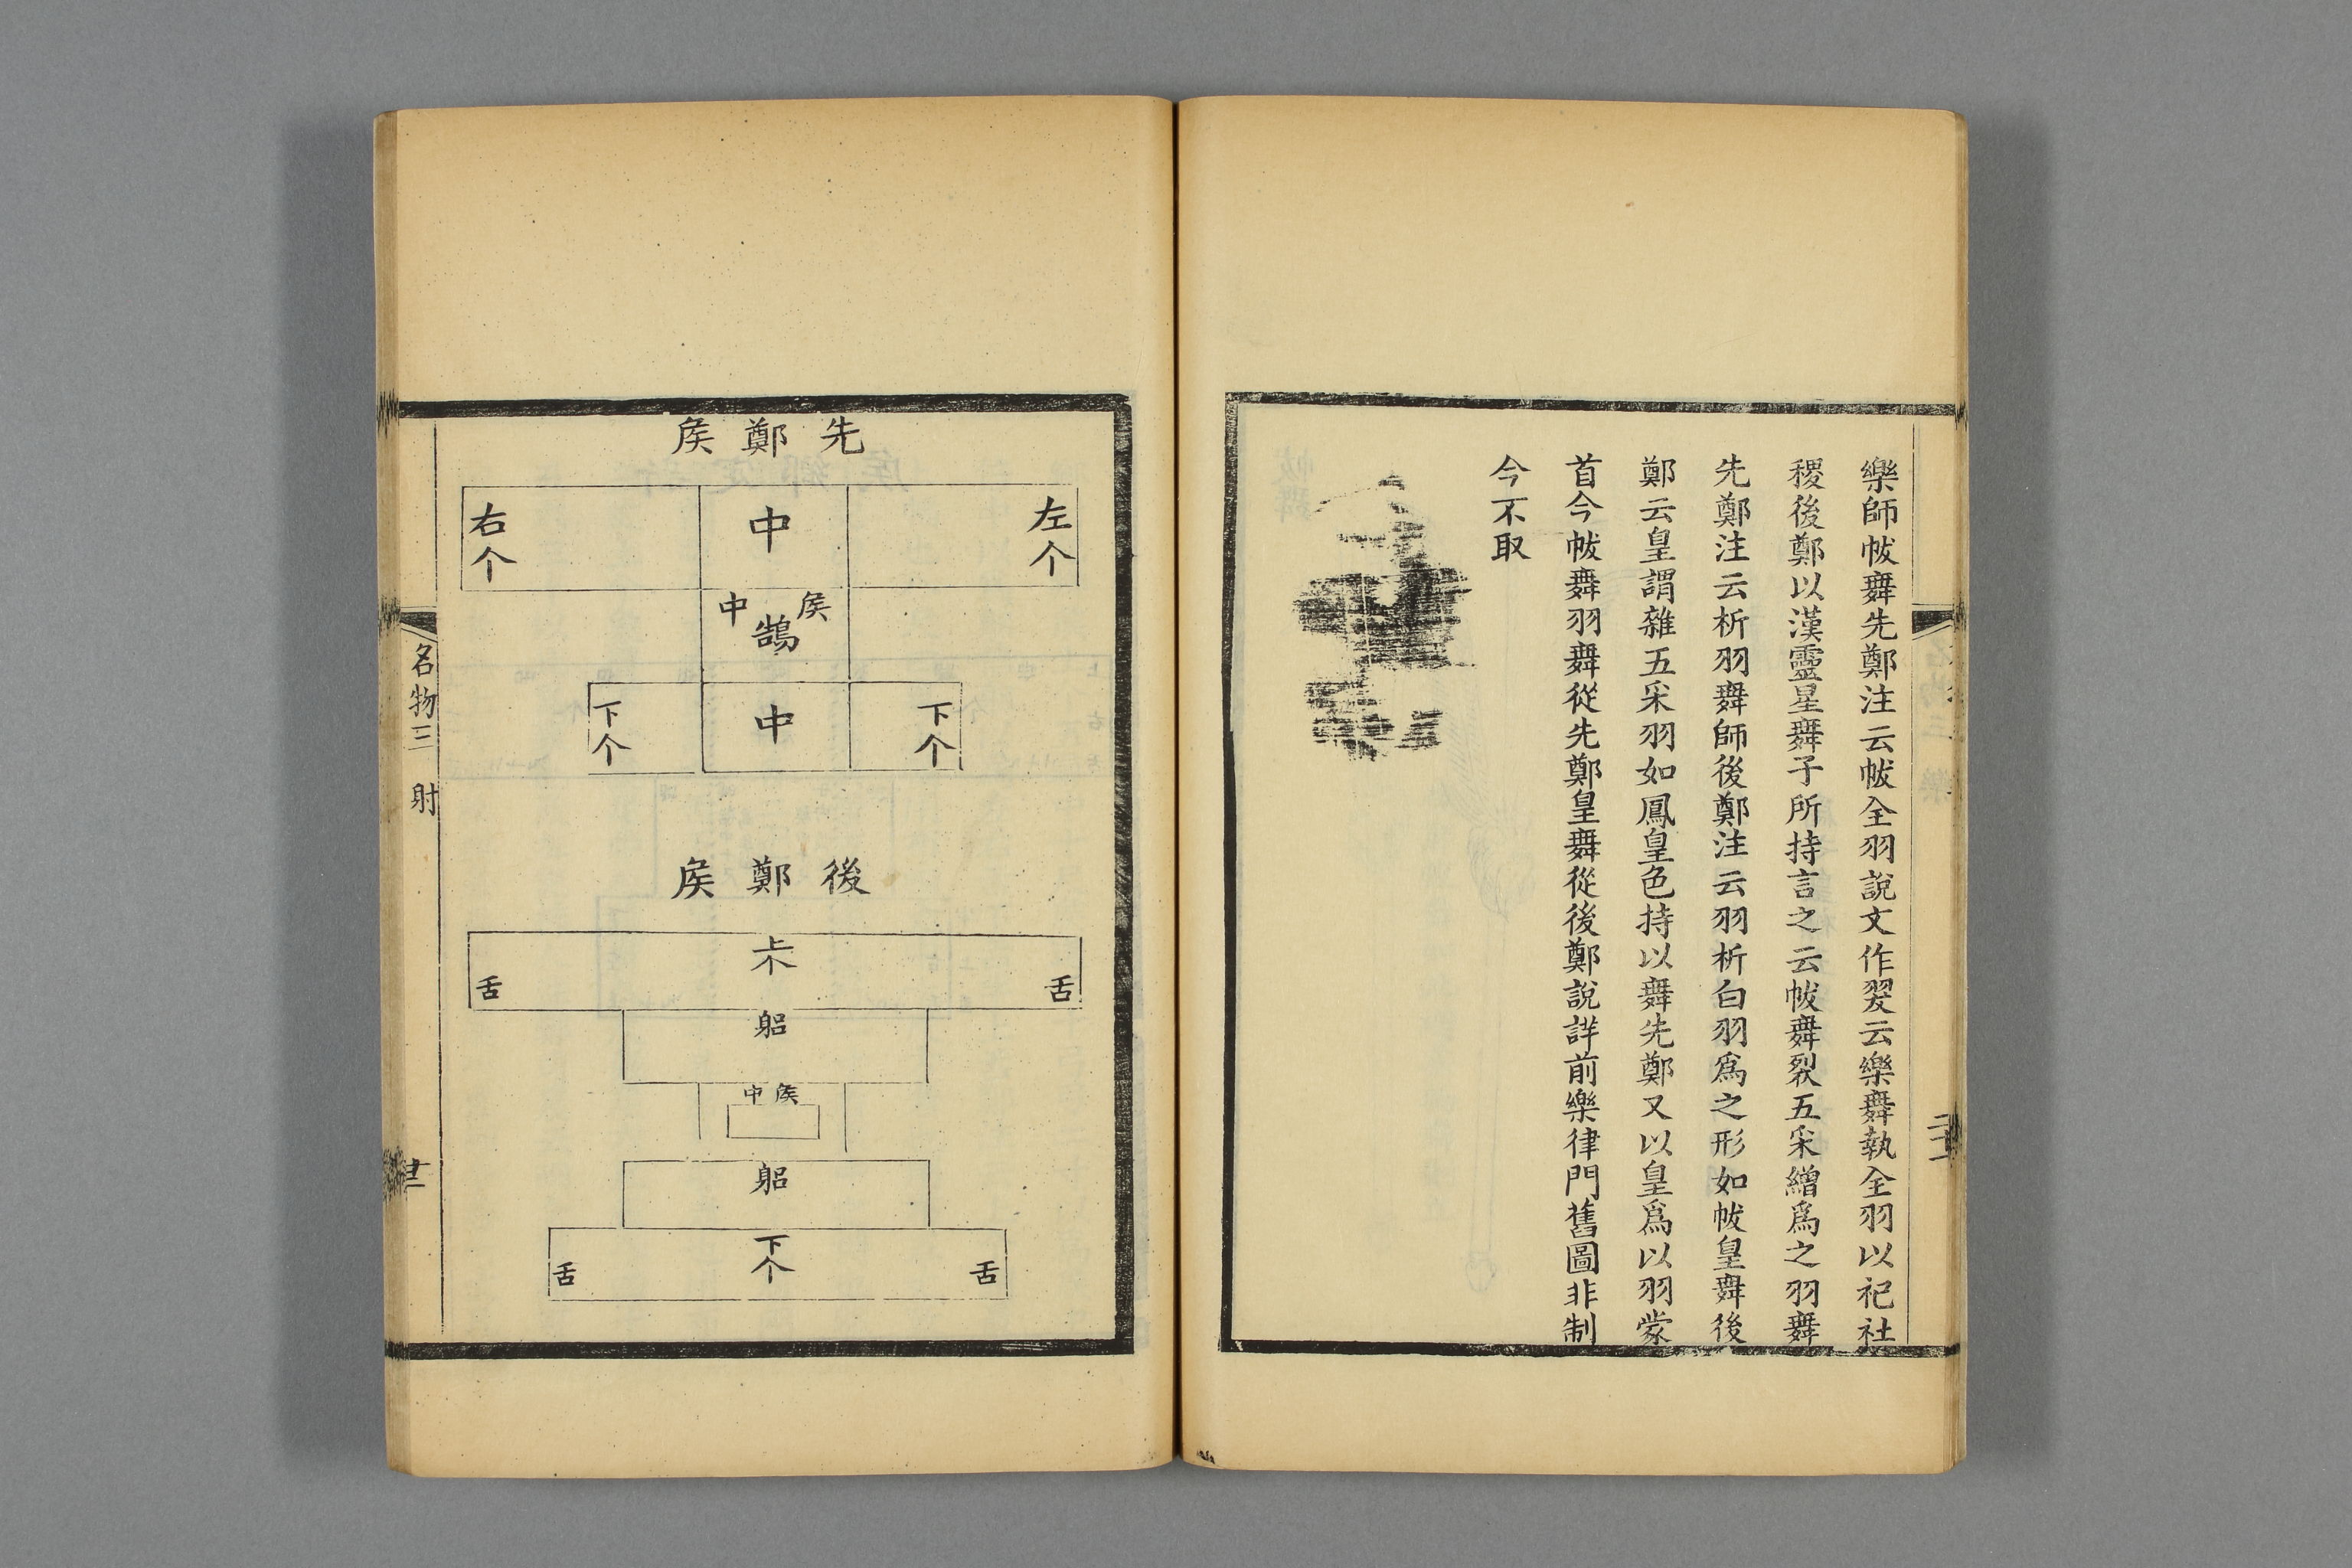 樂師帗舞先鄭注云帗全羽說文作翇云樂舞執全羽以祀社
稷後鄭以漢靈星舞子所持言之云帗舞裂五采繒爲之羽舞
先鄭注云析羽舞師後鄭注云羽析白羽爲之形如帗皇舞後
鄭云皇謂雜五采羽如鳳皇色持以舞先鄭又以皇爲以羽蒙
首今帗舞羽舞從先鄭皇舞從後鄭說詳前樂律門舊圖非制
今不取
先鄭矦
左个
中
右个
矦中
鵠
下个
中
下个
後鄭矦
舌
上个
舌
躳
矦中
躳
舌
下个
舌
名物三 射